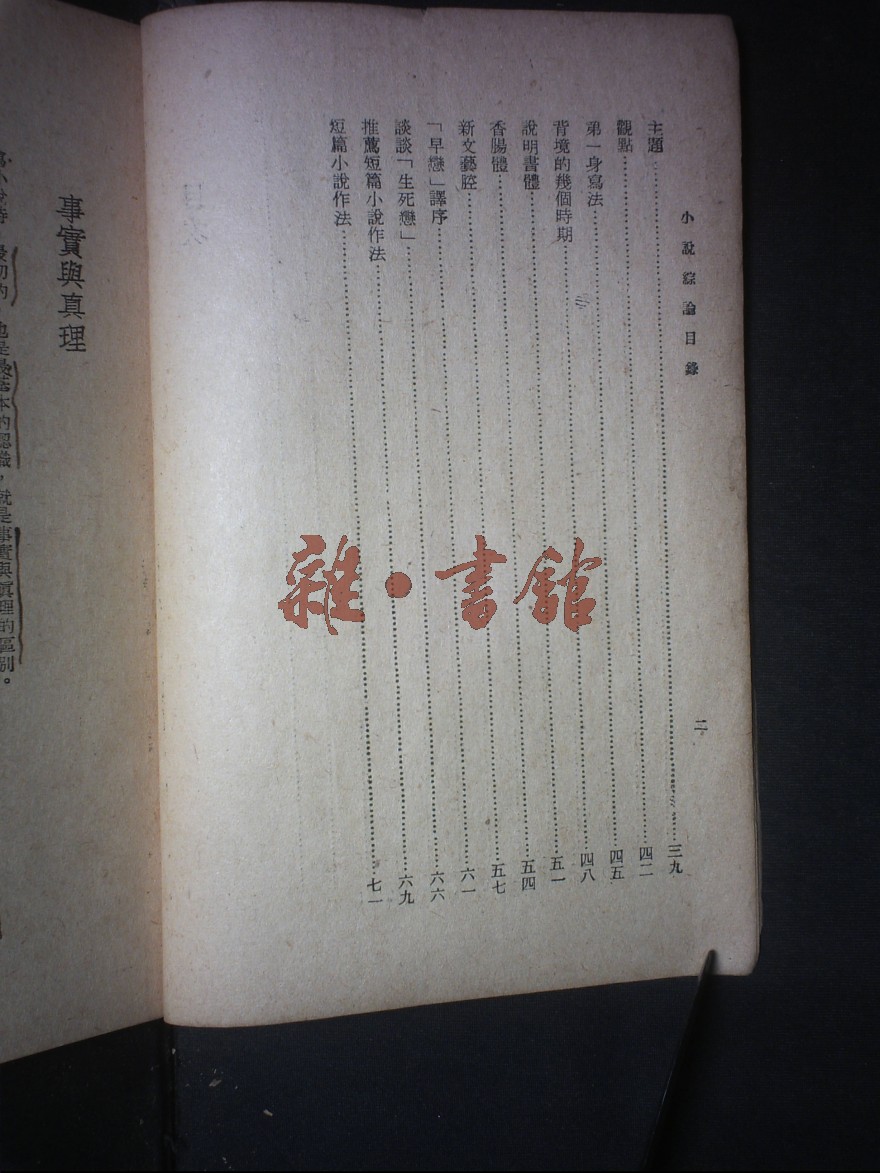 小說綜論目錄 二
主題……三九
觀點……四二
第一身寫法……四五
背境的幾個時期……四八
說明書體……五一
香腸體……五四
新文藝腔……五七
「早戀」譯序……六一
談談「生死戀」……六六
推薦短篇小說作法……六九
短篇小說作法……七一
事實與真理
最初的，也是最基本的認識，就是事實與眞理的區別。
雜·書館